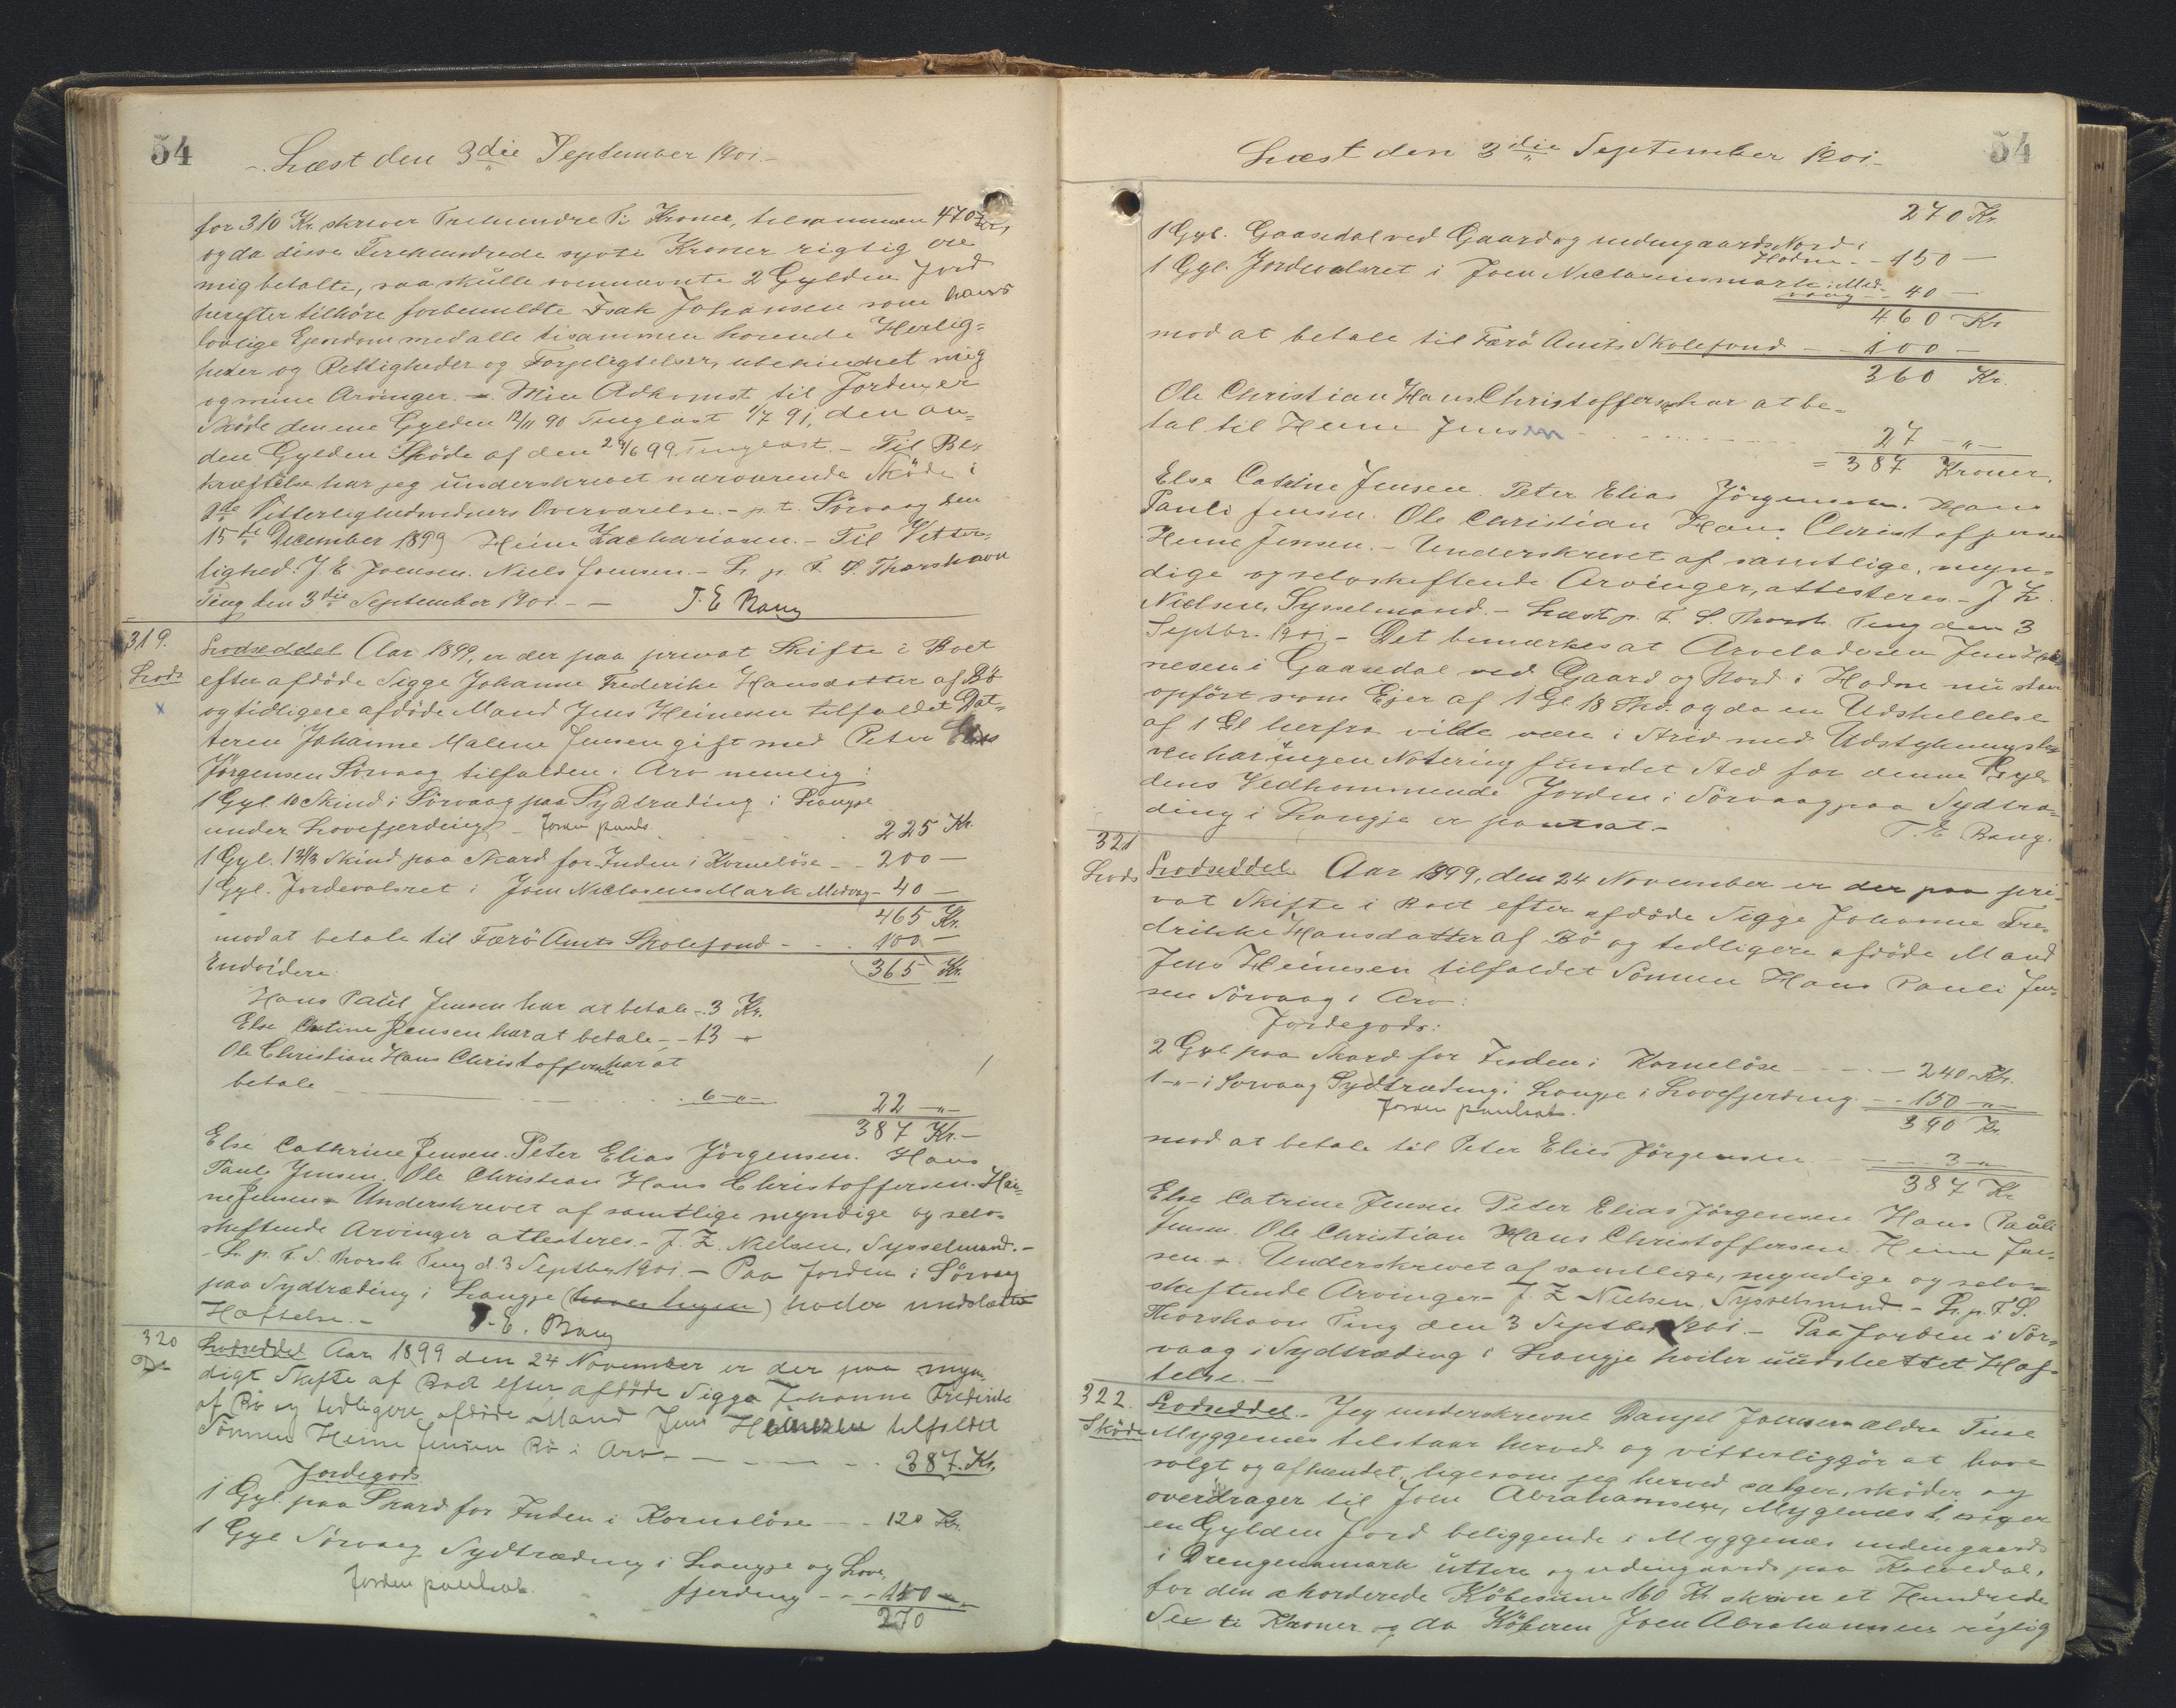 54
Læst den 3die September 1901.-
for 310 Kr. skriver Trehundre Ti Kroner, tilsammen 470 Kr,
og da disse Firehundrede syvti Kroner rigtig ere
mig betalte, saa skulle ovennævnte 2 Gylden Jord
herefter tilhöre forbemeldte Isak Johansen som hans
lovlige Ejendom med alle tisammen hörende Herlig=
heder og Rettigheder og Forpligtelser, ubehindret mig
og mine Arvinger. - Min Adkomst til Jorden er
Sköde den ene Gylden 12/11 90 Tinglæst 1/7 91, den an=
den Gylden Sköde af den 24/6 99 Tinglæst. - Til Be=
kræftelse har jeg underskrevet nærværende Sköde i
Vitterlighedsvidners Overværelse. - p.t. Sörvaag den
15de December 1899 Heine Zachariasen. - Til Vitter=
lighed: J E Joensen. Niels Joensen. - L. p. F. S. Thorshavn
Ting den 3die September 1901. - - T. E Bang
319. Lodseddel Aar 1899, er der paa privat Skifte i Boet
Lods efter afdöde Sigge Johanne Frederike Hansdatter af Bö
x og tidligere afdöde Mand Jens Heinesen tilfaldet Dat=
teren Johanne Malene Jensen gift med Peter Elias
Jörgensen Sörvaag tilfalden i Arv nemlig:
1 Gyl. 10 Skind i Sörvaag paa Sydtræding i Laugje
under Lovefjerding - Jorden pants. 225 Kr.
1 Gyl. 13 1/3 Skind paa Skard for Inden i Korneløse - - 200 -
1 Gyl. Jordevalsret i Joen Niclasens Mark Midvaag - 40 -
465 Kr.
mod at betale til Færö Amts Skolefond - - . 100 -
365 Kr.
Endvidere:
Hans Paul Jensen har at betale - 3 Kr.
Else Catrine Jensen har at betale - - 13 -"-
Ole Christian Hans Christoffersen har at
betale - - - 6 -"- 22 -"-
387 Kr. -
Else Cathrine Jensen. Peter Elias Jörgensen. Hans
Pauli Jensen. Ole Christian Hans Christoffersen. Hei=
ne Jensen. Underskrevet af samtlige myndige og selv=
skiftende Arvinger attesteres. - J. Z. Nielsen, Sysselmand. -
- L. p. F. S. Thorsh. Ting d. 3 Septbr. 1901. - Paa Jorden i Sörvaag
paa Sydtræding i Laugje (haver Ingen) hviler uudslettet
Hæftelse. - T. E. Bang
320 Lodseddel Aar 1899 den 24 November er der paa myn=
Do digt Skifte af Boet efter afdöde Sigga Johanne Frederike
af Bö og tidligere afdöde Mand Jens Heinesen tilfaldet
Sönnen Heine Jensen Bö i Arv - - - - . . 387. Kr.
Jordegods
1 Gyl. paa Skard for Inden i Korneløse - - - 120 Kr.
1 Gyl Sörvaag Sydtræding i Laugje og Love=
Jorden pantsat. fjerding - - - 150 -
270
54
Læst den 3die September 1901.-
270 Kr.
1 Gyl. Gaasedal ved Gaard og indengaards Nord i
Hodne - - 150 -
1 Gyl. Jordevalsret i Joen Niclasensmark i Mid=
vaag - - 40 -
460 Kr
mod at betale til Færö Amts Skolefond - - 100 -
360 Kr.
Ole Christian Hans Christoffersen har at be=
tal til Heine Jensen - - - 27 -"-
= 387 Kroner.
Else Catrine Jensen. Peter Elias Jörgensen. Hans
Pauli Jensen. Ole Christian Hans Christoffersen
Heine Jensen. - Underskrevet af samtlige, myn=
dige og selvskiftende Arvinger, attesteres. - J Z.
Nielsen, Sysselmand. - Læst p. F. S. Thorsh. Ting den 3
Septbr. 1901 - Det bemærkes at Arveladeren Jens Hei=
nesen i Gaasedal ved Gaard og Nord i Hodne nu staar
opfört som Ejer af 1 Gl 18 Skd. og da en Udskillelse
af 1 Gl herfra vilde være i Strid med Udstykningslo=
ven har ingen Notering fundet Sted for denne Gyl=
dens Vedkommende Jorden i Sörvaag paa Sydtræ=
ding i Laugje er pantsat. - T. E Bang.
321 Lodseddel Aar 1899, den 24 November er der paa pri=
Lods vat Skifte i Boet efter afdöde Sigge Johanne Fre=
drikke Hansdatter af Bö og tidligere afdöde Mand
Jens Heinesen tilfaldet Sönnen Hans Pauli Jen=
sen Sörvaag i Arv:
Jordegods:
2 Gyl paa Skard for Inden i Korneløse - - - - 240 Kr.
1 -"- i Sorvaag Sydtræding i Laugje i Lovefjerding - - 150 -"-
Jorden pantsat. 390 Kr
mod at betale til Peter Elias Jörgensen - - 3 -"-
387 Kr
Else Catrine Jensen Peter Elias Jörgensen Hans Pauli
Jensen. Ole Christian Hans Christoffersen. Heine Jen=
sen. - Underskrevet af samtlige, myndige og selv=
skiftende Arvinger - J. Z Nielsen, Sysselmand - L. p. F. S.
Thorshavn Ting den 3 Septbr 1901. - Paa Jorden i Sör=
vaag i Sydtræding i Laugje hviler uudslettet Hæf=
telse. -
322. Lodseddel. Jeg underskrevne Danjel Joensen ældre Tuse
Sköde Myggenæs tilstaar herved og vitterliggör at have
solgt og afhændet, ligesom jeg herved sælger, sköder og
overdrager til Joen Abrahamsen, Mygenæs
en Gylden Jord beliggende i Myggenæs indengaards
i Drengenamark üttere og udengaards paa Kalvedal,
for den akorderede Köbesum 160 Kr. skriver et Hundrede
Sex ti Kroner og da Köberen Joen Abrahamsen rigtig